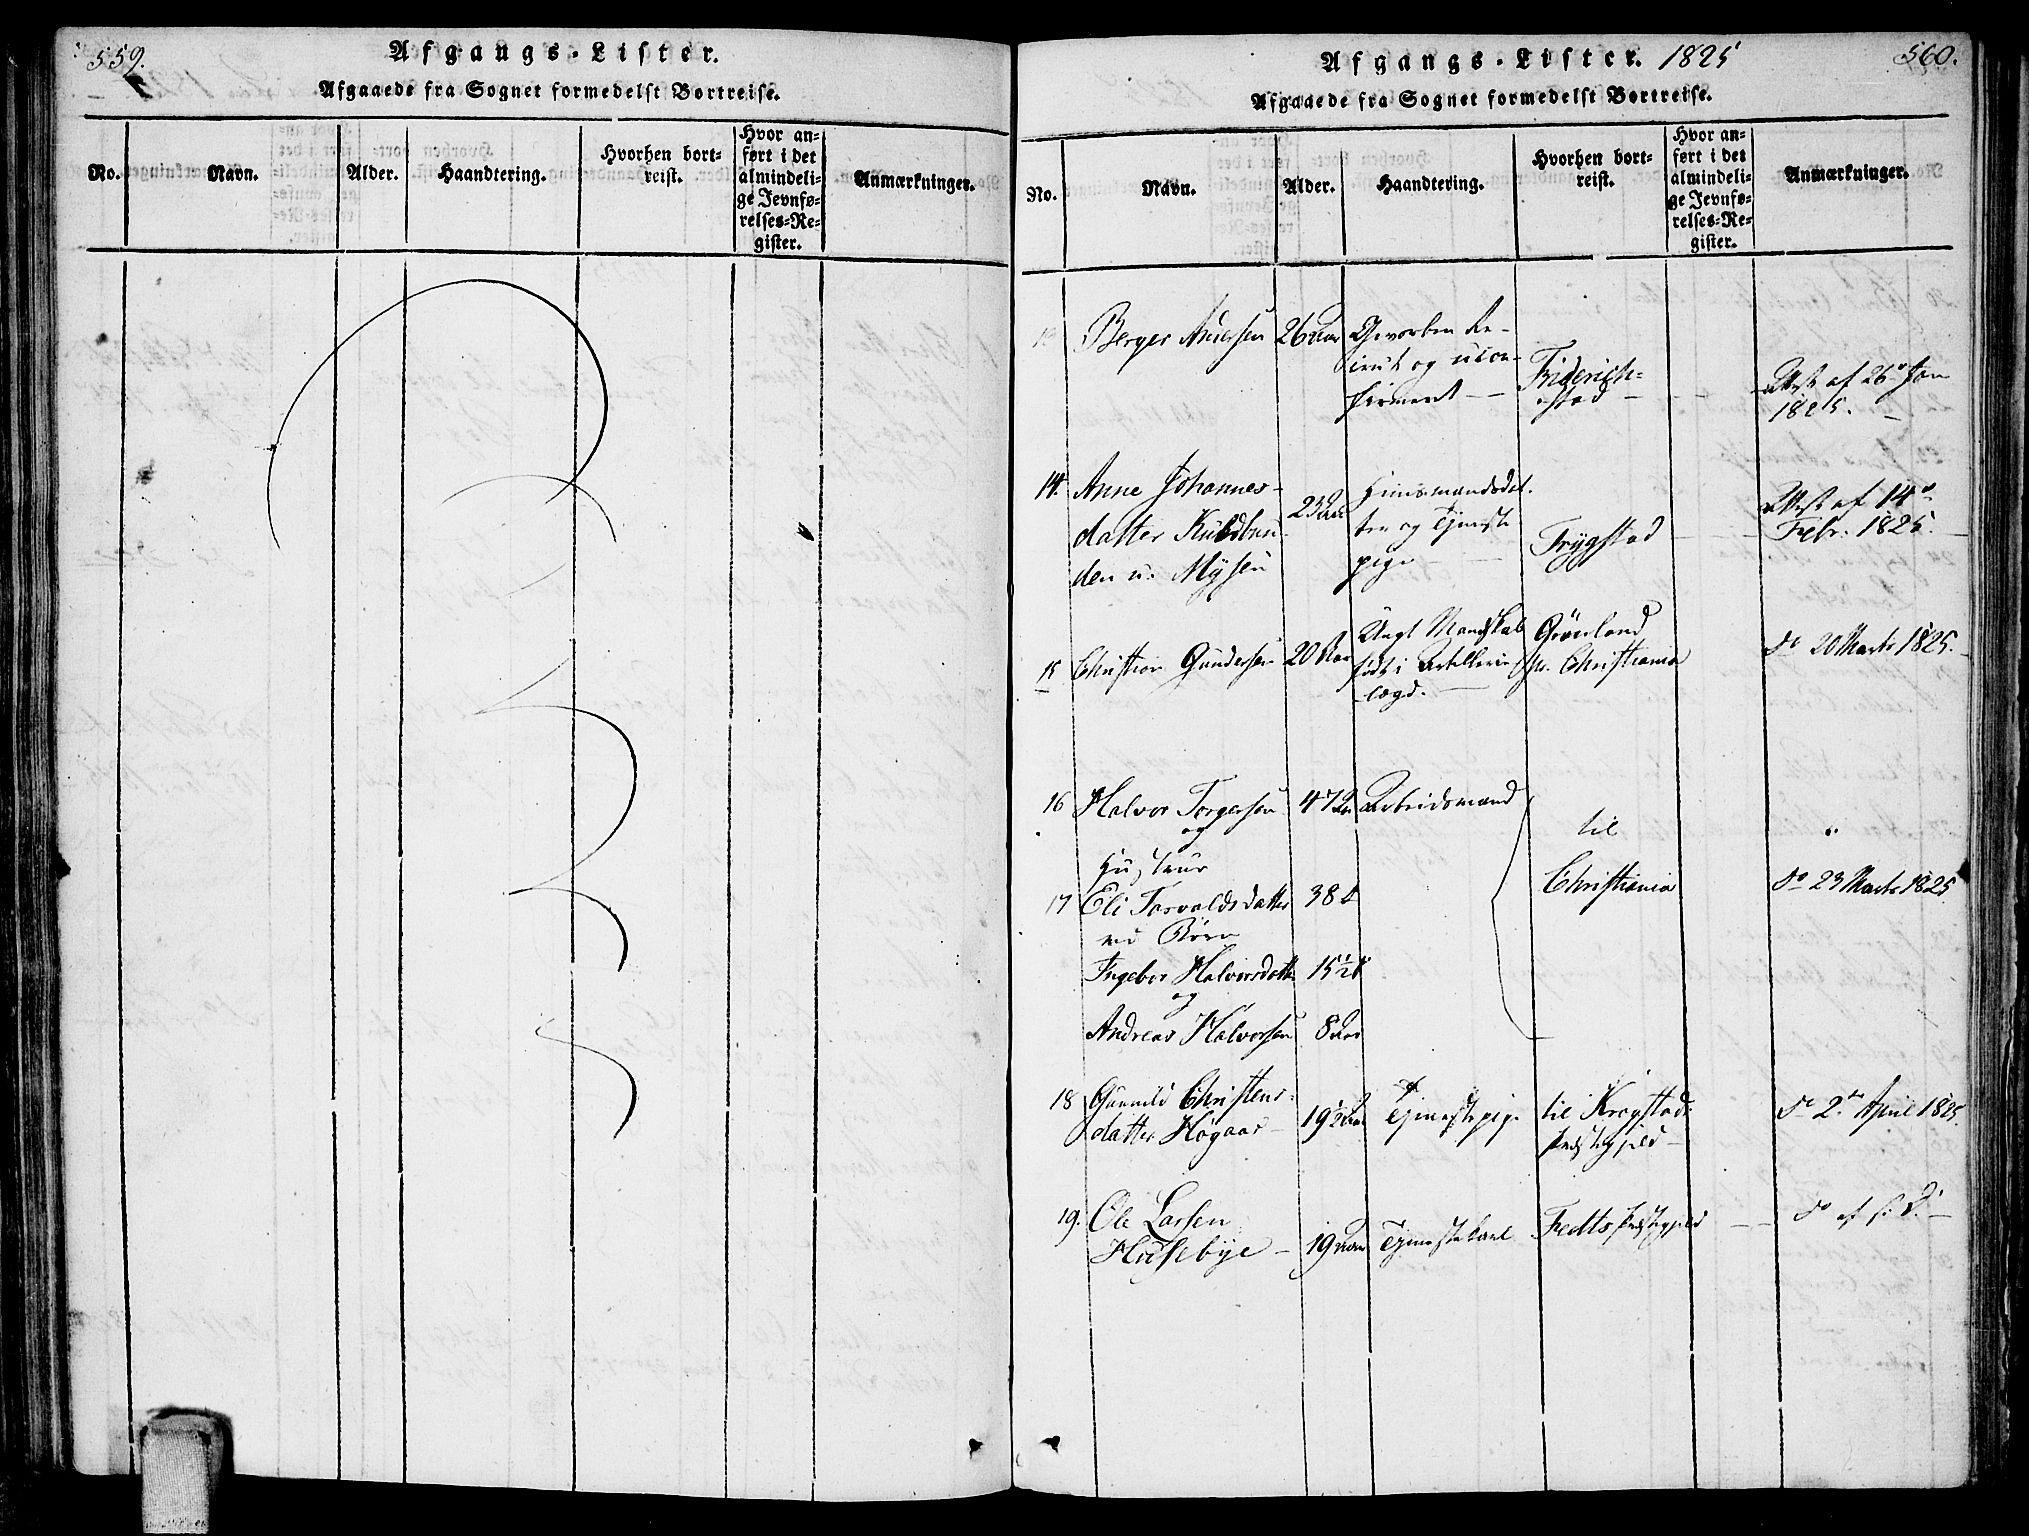 559.
Afgangs-Lister.
Afgaaede fra Sognet formedelst Bortreise.
No.
Navn.
Alder.
Haandtering.
Hvorhen bort-
reist.
Hvor an-
ført i det
almindeli-
ge Jevnfø-
relses-Re-
gister.
Anmærkninger.
Afgangs-Lister. 1825
560.
Afgaaede fra Sognet formedelst Bortreise.
No.
Navn.
Alder.
Haandtering.
Hvorhen bort-
reist.
Hvor an-
ført i det
almindeli-
ge Jevnfø-
relses-Re-
gister.
Anmærkninger.
Berger Andersen 26 Aar
Gevorben Re-
crut og ucon-
firmeret
Friderich-
stad
Attest af 26de Jan
1825.
14. Anne Johannes-
datter
den u. Mysen
23 Aar
Huusmandsdat-
ter og Tjeneste
pige
Trygstad
Attest af 14de
Febr. 1825.
15 Christian Gundersen 20 Aar
Ungt Mandskab
født i Artillerie
lægd.
Grønland
Christiania
do 20 Marts 1825.
16 Halvor Torgersen 47 Aar Arbeidsmand
og
Hustrue
17 Eli Torvaldsdatter 38
Børn
Ingebor Halvorsdatter 15 1/2
og
Andreas Halvorsen 8 Aar
til
Christiania
do 23 Marts 1825
18 Gunnild Christens-
datter Høgaas
19 1/2 Aar Tjenestepige
til Krogstad
Præstegjeld
do 2den April 1825.
19. Ole Larsen
Husebye
19 Aar Tjenestekarl
Fedts Præstegjeld
do af s. D.